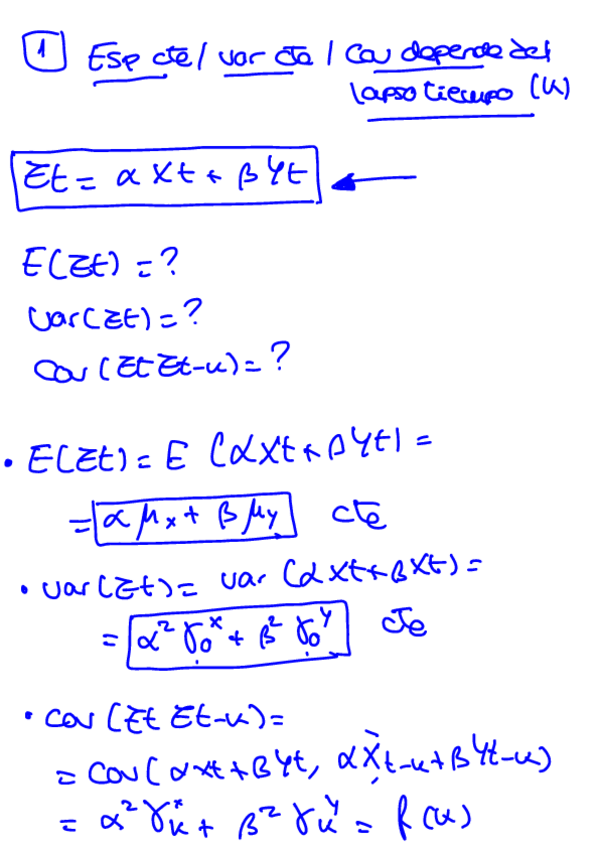 1 Esp cte / var cte / Cov depende del
lapso tiempo (k)
Zt = α Xt + β Yt
E(Zt) = ?
Var(Zt) = ?
Cov (Zt Zt-k) = ?
• E(Zt) = E (αXt + βYt) =
= α μx + β μy cte
• var(Zt) = var (αXt + βXt) =
= α² γ₀ˣ + β² γ₀ʸ cte
• cov (Zt Zt-k) =
= Cov (αxt + βYt, αXt-k + βYt-k)
= α² γₖˣ + β² γₖʸ = f(k)